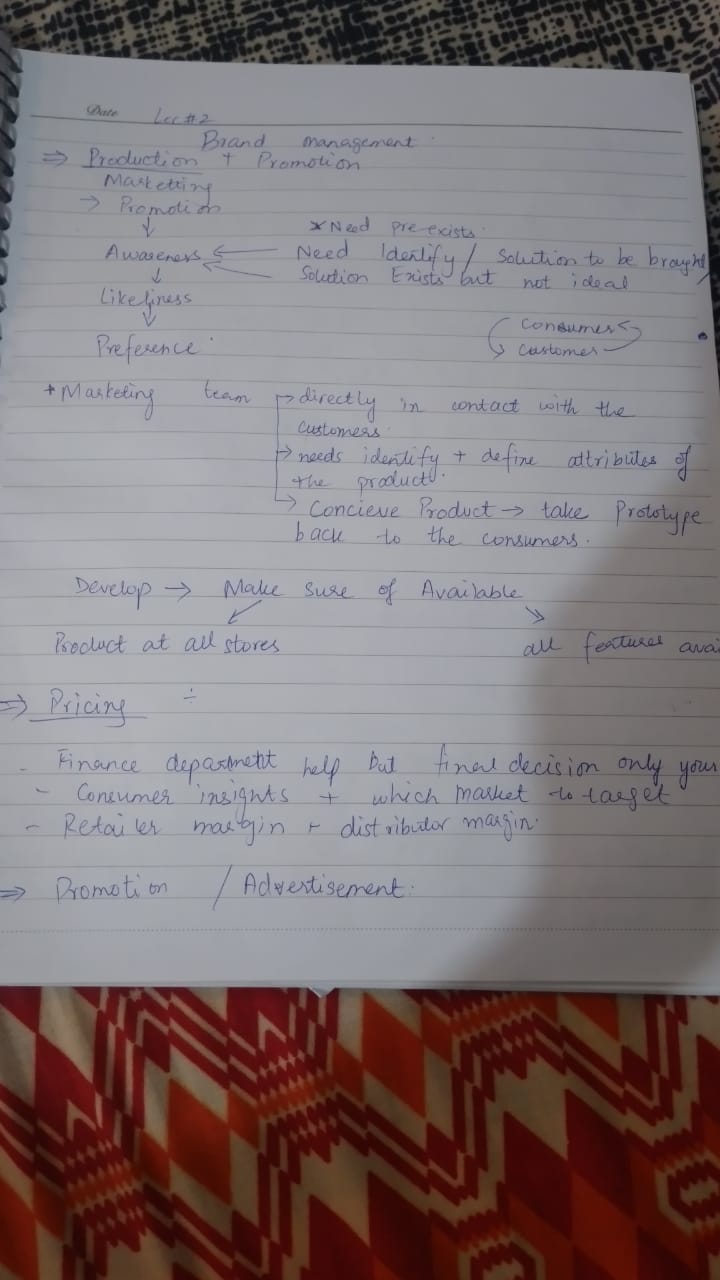 Date Lec #2
Brand management
⇒ Production + Promotion
Marketting
→ Promotion
↓
* Need pre-exists.
Awareness ← Need Identify / Solution to be brought
← Solution Exists but not ideal
↓
Likeliness
↓
Preference
Consumer
Customer
+ Marketing team → directly in contact with the
customers
→ needs identify + define attributes of
the product.
→ Concieve Product → take Prototype
back to the consumers.
Develop → Make sure of Available
Product at all stores all features avai
⇒ Pricing ÷
- Finance department help but final decision only your
- Consumer insights + which market to target
- Retailer margin + distributor margin.
⇒ Promotion / Advertisement.